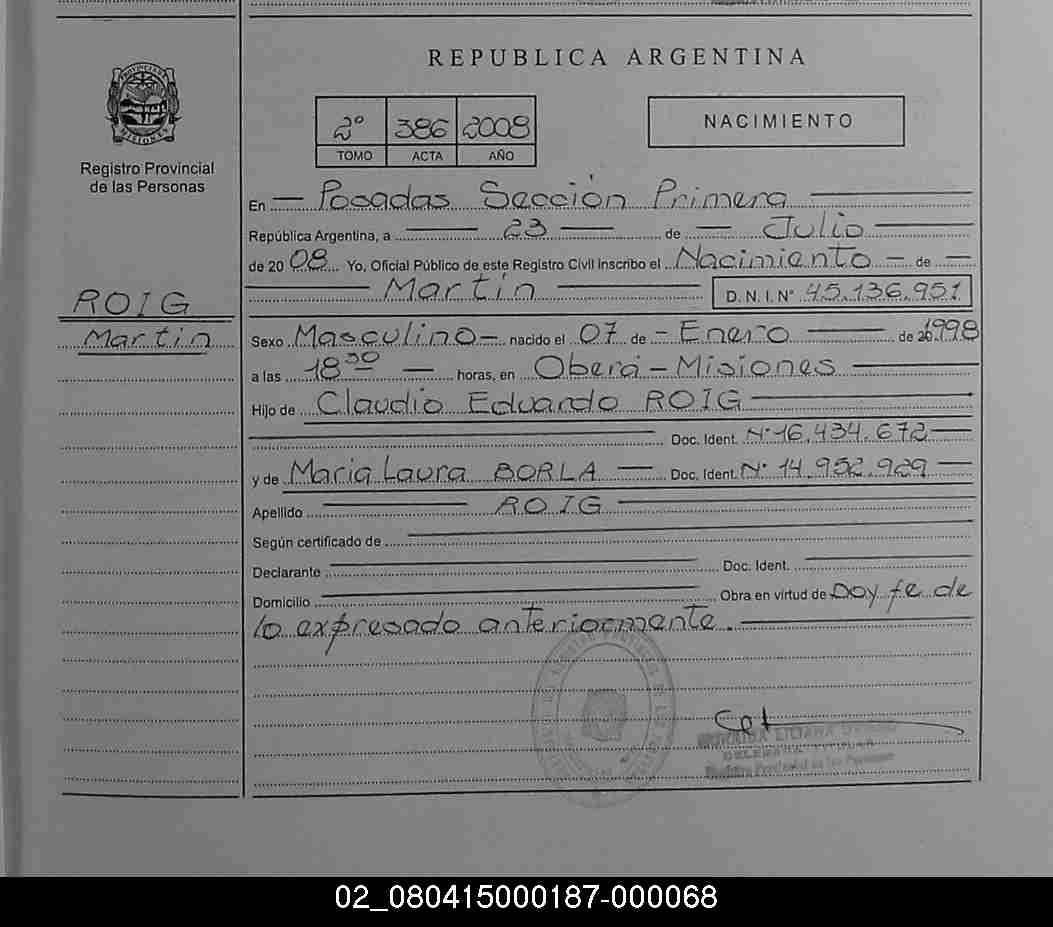 REPUBLICA ARGENTINA
PROVINCIA DE
MISIONES
Registro Provincial
de las Personas
2° 386 2008
TOMO ACTA AÑO
NACIMIENTO
En — Posadas Sección Primera —
República Argentina, a — 23 — de — Julio —
de 20 08 Yo, Oficial Público de este Registro Civil inscribo el Nacimiento — de —
— Martín — D. N. I. N° 45.136.951
ROIG
Martín
Sexo Masculino — nacido el 07 de — Enero — de 20 1998
a las 18 30 — horas, en Oberá - Misiones —
Hijo de Claudio Eduardo ROIG —
— Doc. Ident. N° 16.434.672 —
y de Maria Laura BORLA — Doc. Ident. N° 14.952.929 —
Apellido — ROIG —
Según certificado de —
Declarante — Doc. Ident. —
Domicilio — Obra en virtud de Doy fe de
lo expresado anteriormente. —
LILIANA
Registro Provincial de las Personas
02_080415000187-000068